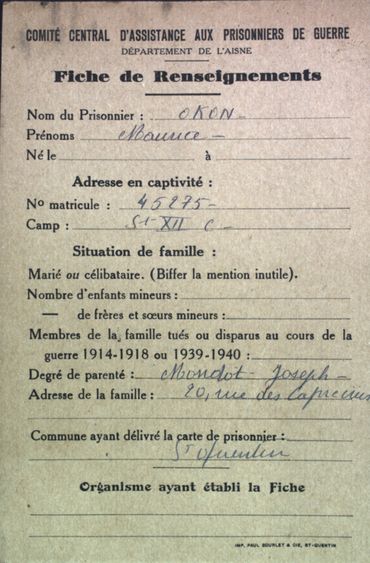 COMITÉ CENTRAL D'ASSISTANCE AUX PRISONNIERS DE GUERRE
DÉPARTEMENT DE L'AISNE
Fiche de Renseignements
Nom du Prisonnier : OKON
Prénoms Maurice
Né le à
Adresse en captivité :
No matricule : 45275
Camp : St XII C
Situation de famille :
Marié ou célibataire. (Biffer la mention inutile).
Nombre d'enfants mineurs :
— de frères et sœurs mineurs :
Membres de la famille tués ou disparus au cours de la
guerre 1914-1918 ou 1939-1940 :
Degré de parenté : Mondot Joseph
Adresse de la famille : 20, rue des
Commune ayant délivré la carte de prisonnier :
St Quentin
Organisme ayant établi la Fiche
IMP. PAUL BOURLET & CIE, ST-QUENTIN